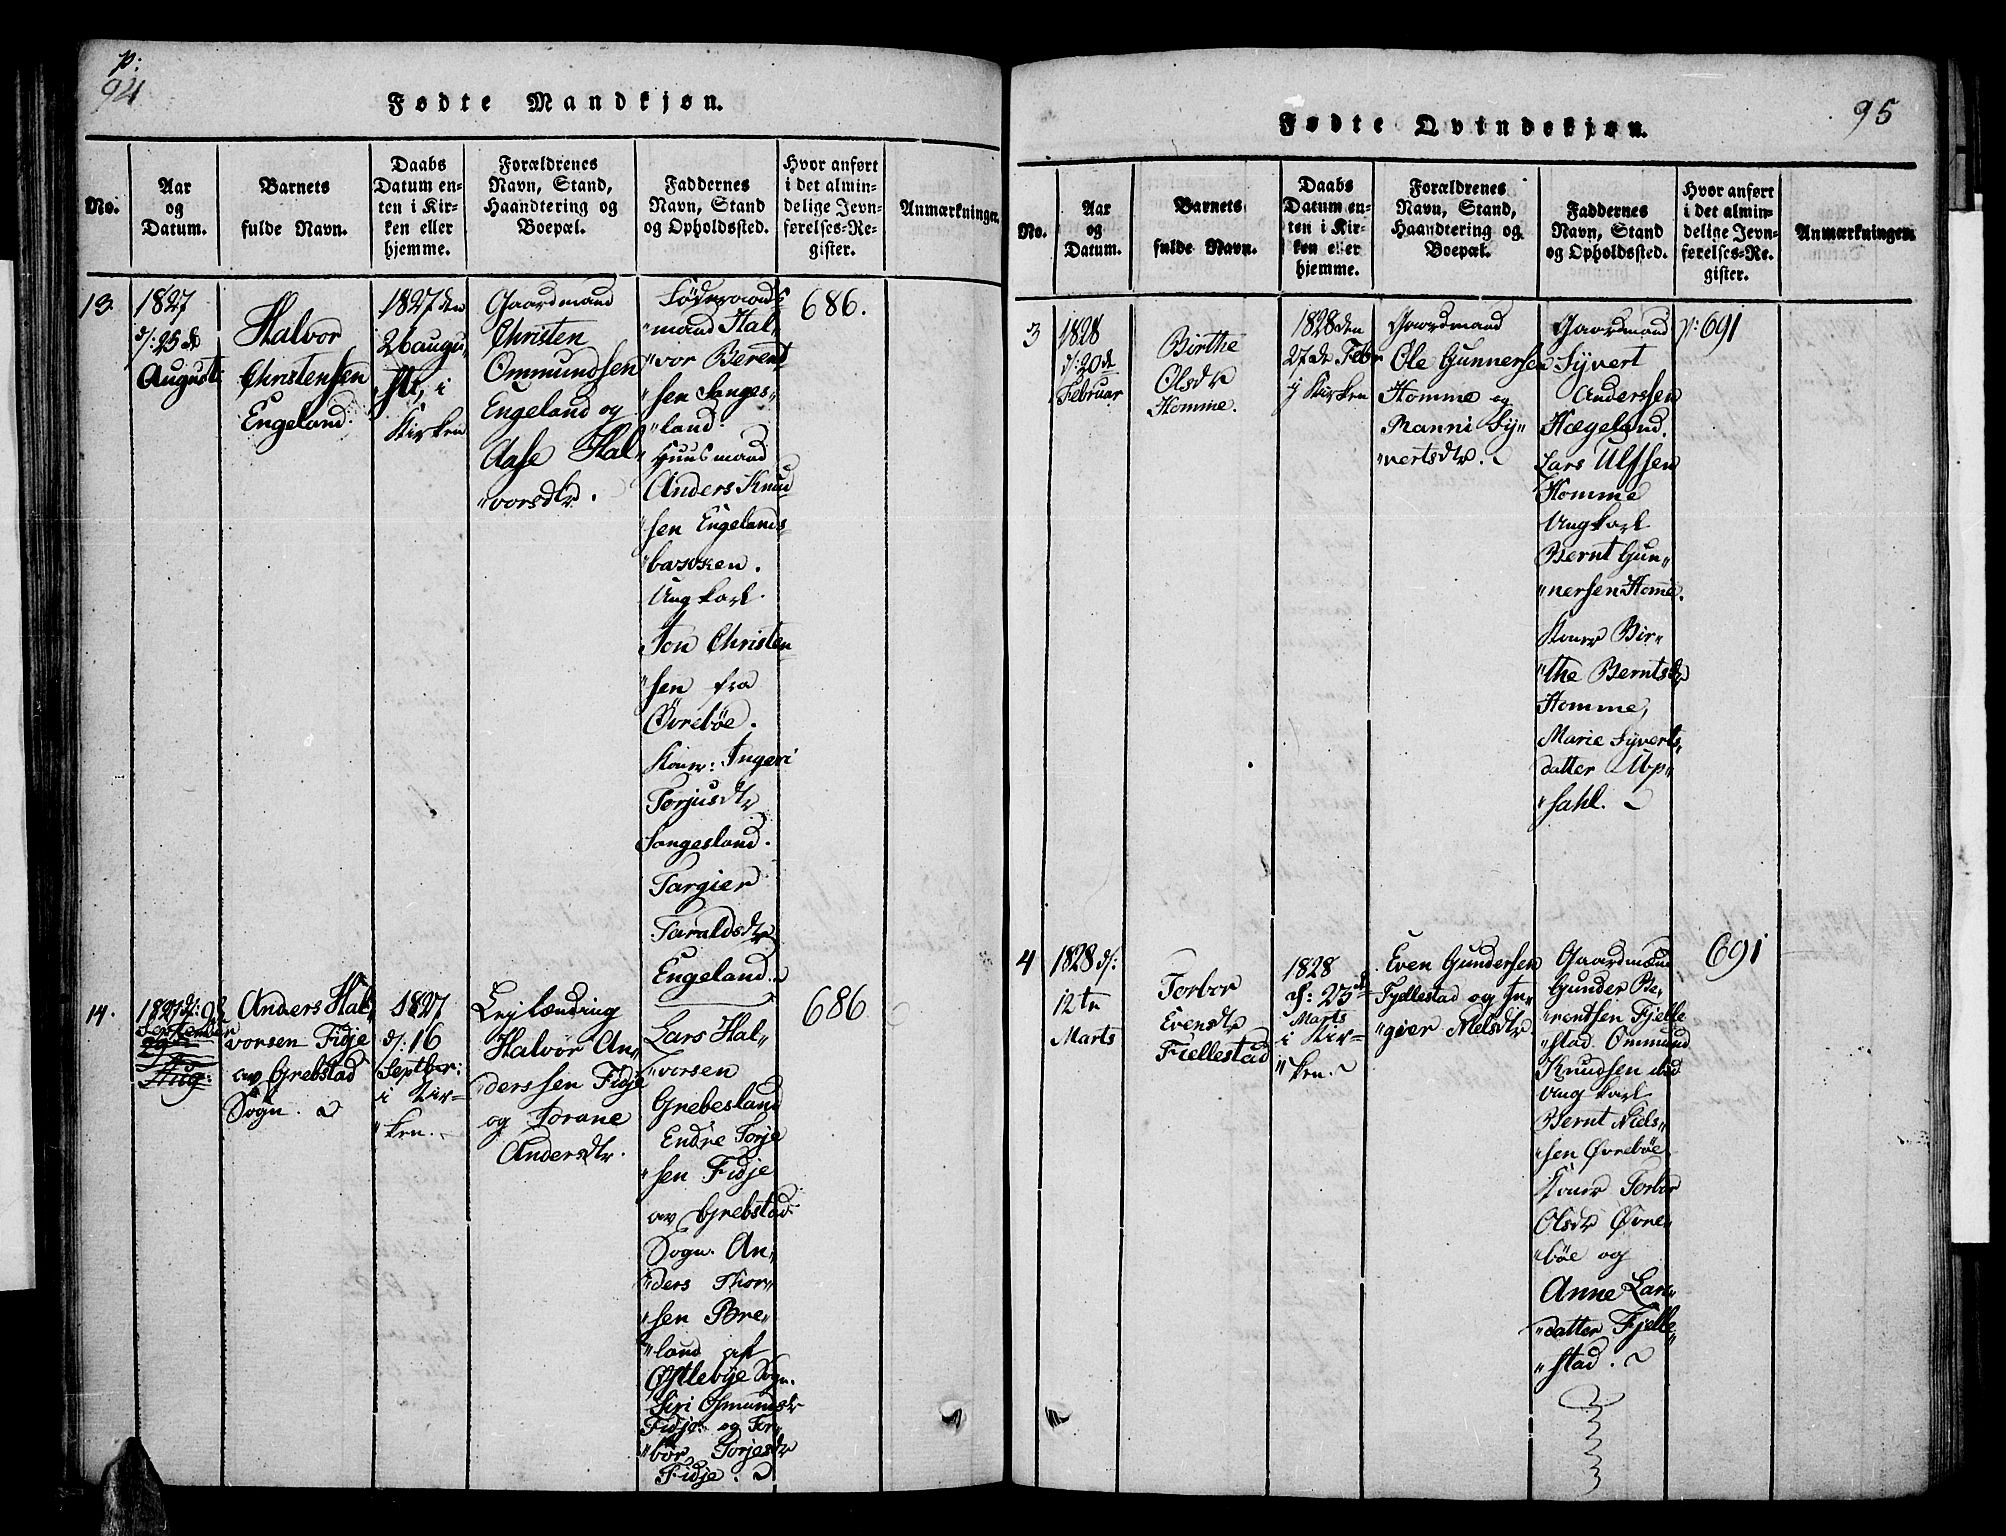 p:
94
Fødte Mandkjøn.
No.
Aar
og
Datum.
Barnets
fulde Navn.
Daabs
Datum en-
ten i Kir-
ken eller
hjemme.
Forældrenes
Navn, Stand,
Haandtering og
Boepæl.
Faddernes
Navn, Stand
og Opholdssted.
Hvor anført
i det almin-
delige Jevn-
førelses-Re-
gister.
Anmærkninger.
13.
1827
d: 25 de
August
Halvor
Christensen
Engeland.
1827 den
26 augu„
„st, i
Kirken
Gaardmand
Christen
Ommundsen
Engeland og
Aase Hal„
„vorsdtr.
mand Hal„
„vor Berent
„sen Sanges„
„land.
Huusmand
Anders Knu
„sen Engelands
„bakken.
Ungkarl
Jon Christen
„sen fra
Øvrebøe.
Koner: Ingeri
Torjusdtr
Sangesland.
Targier
Taraldsdtr
Engeland.
686.
14.
1827 d:
September
Aug:
Anders Hal„
vorsen Fidje
av Grebstad
Sogn.
1827
d: 16
Septber:
i Kir„
„ken.
Lejlænding
Halvor An„
„derssen Fidje
og Torane
Andersdtr.
Lars Hal„
„vorsen
Grebesland
Endre Torje
„sen Fidje
av Grebstad
Sogn. An„
„ders Thor„
„sen Bre„
„land af
Østlebye Sogn.
Siri Osmundsdtr
Fidje og Tor„
„bor Torjesdtr
Fidje.
686
95
Fødte Qvindekjøn.
No.
Aar
og
Datum.
Barnets
fulde Navn.
Daabs
Datum en-
ten i Kir-
ken eller
hjemme.
Forældrenes
Navn, Stand,
Haandtering og
Boepæl.
Faddernes
Navn, Stand
og Opholdssted.
Hvor anført
i det almin-
delige Jevn-
førelses-Re-
gister.
Anmærkninger.
3
1828
d: 20 de
Februar
Birthe
Olsdtr
Homme.
1828 den
27 de Febr
i Kirken
Gaardmand
Ole Gunnersen
Homme og
Manni Sy„
„vertsdtr.
Gaardmand
Syvert
Anderssen
Hægeland.
Lars Ulfsen
Homme
Ungkarl
Bernt Gun„
„nersen Homme.
Koner Bir„
„the Berntsdtr
Homme,
Marie Syverts„
datter Up„
„sahl.
p: 691
4
1828 d:
12te
Marts
Torbor
Evensdtr
Fjellestad
1828
d: 23 de
Marts
i Kir„
„ken.
Even Gundersen
Fjellestad og In„
„gier Nelsdtr
Gaardmænd
Gunder Be„
„rentsen Fjelle
„stad. Ommund
Knudsen ibd
Ungkarl
Bernt Niels„
„sen Øvrebøe
Koner Torbor
Olsdtr Øvre„
„bøe og
Anne Lars„
„datter Fjelle„
„stad.
691